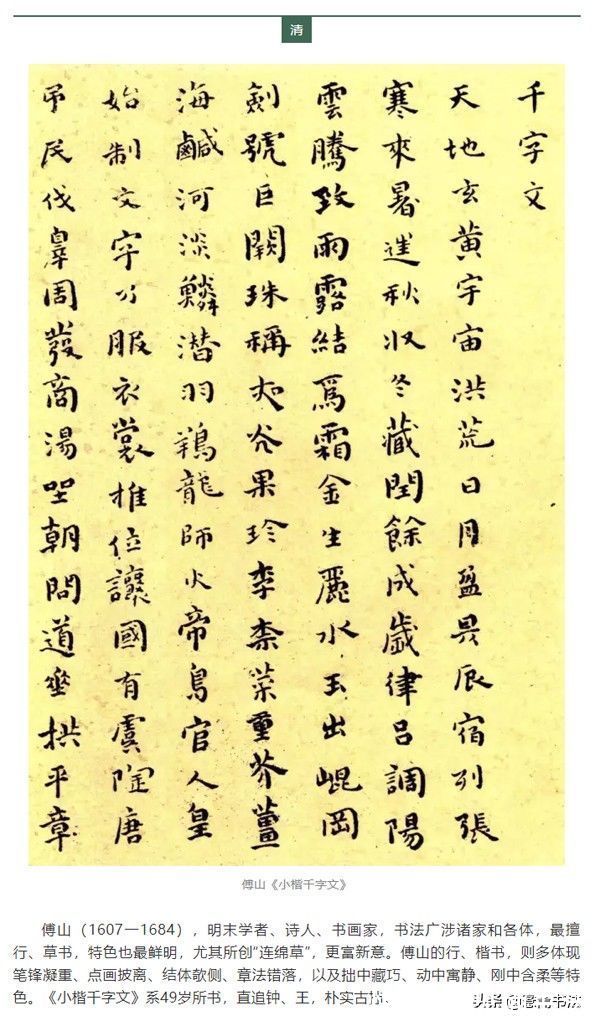 清
千字文
天地玄黃宇宙洪荒日月盈昃辰宿列張
寒來暑進秋收冬藏閏餘成歲律呂調陽
雲騰致雨露結爲霜金生麗水玉出崐岡
劍號巨闕珠稱夜光果珍李柰菜重芥薑
海鹹河淡鱗潛羽鵎龍師火帝鳥官人皇
始制文字乃服衣裳推位讓國有虞陶唐
弔民伐辠周發商湯坐朝問道垂拱平章
傅山《小楷千字文》
傅山（1607—1684），明末学者、诗人、书画家，书法广涉诸家和各体，最擅
行、草书，特色也最鲜明，尤其所创“连绵草”，更富新意。傅山的行、楷书，则多体现
笔锋凝重、点画披离、结体欹侧、章法错落，以及拙中藏巧、动中寓静、刚中含柔等特
色。《小楷千字文》系49岁所书，直追钟、王，朴实古拙.
头条 书法